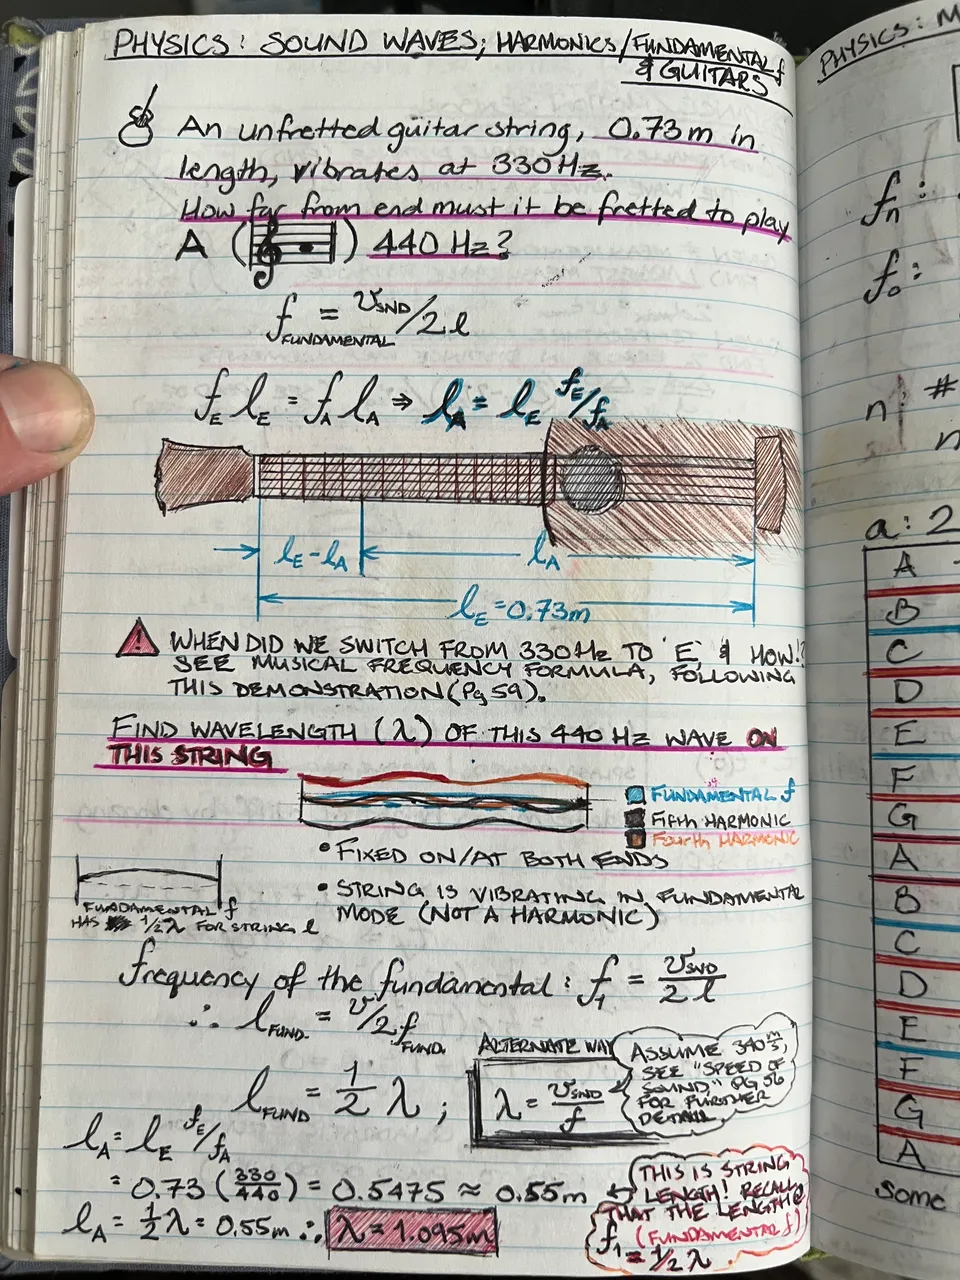 PHYSICS: SOUND WAVES; HARMONICS/FUNDAMENTAL f
& GUITARS
An unfretted guitar string, 0.73m in
length, vibrates at 330Hz.
How far from end must it be fretted to play
A ( ) 440 Hz?
f FUNDAMENTAL = v SND/2l
f_E l_E = f_A l_A ⇒ l_A = l_E f_E/f_A
l_E-l_A
l_A
l_E=0.73m
WHEN DID WE SWITCH FROM 330Hz TO 'E', & HOW!?
SEE MUSICAL FREQUENCY FORMULA, FOLLOWING
THIS DEMONSTRATION (Pg 59).
FIND WAVELENGTH (λ) OF THIS 440 Hz WAVE ON
THIS STRING
FUNDAMENTAL f
FIFTH HARMONIC
FOURTH HARMONIC
• FIXED ON/AT BOTH ENDS
• STRING IS VIBRATING IN FUNDAMENTAL
MODE (NOT A HARMONIC)
FUNDAMENTAL f
HAS 1/2 λ FOR STRING l
frequency of the fundamental: f₁ = v SND / 2 l
∴ l FUND. = v/2f FUND.
l FUND = 1/2 λ ;
ALTERNATE WAY
λ = v SND / f
ASSUME 340 m/s,
SEE "SPEED OF
SOUND" PG 56
FOR FURTHER
DETAIL
l_A = l_E f_E/f_A
= 0.73 (330/440) = 0.5475 ≈ 0.55m
l_A = 1/2 λ = 0.55m ∴ λ = 1.095m
THIS IS STRING
LENGTH! RECALL
THAT THE LENGTH @
(FUNDAMENTAL f)
f₁ = 1/2 λ
PHYSICS: M
f_n :
f_o :
#
n:
n
a: 2
A
B
C
D
E
F
G
A
B
C
D
E
F
G
A
Some